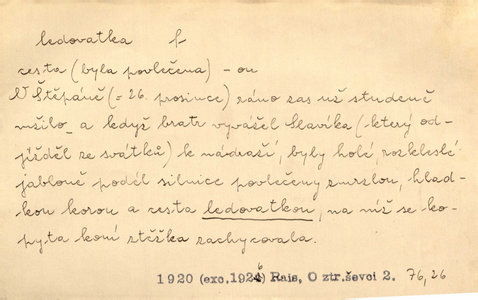 ledovatka f
cesta (byla povlečena) – ou
V Štěpáně (= 26. prosince) ráno zas už studeně
mžilo a když bratr vyvážel Slavíka (který od-
jížděl ze svátků) k nádraží, byly holé rozkleslé
jabloně podél silnice povlečeny zmrzlou, hlad-
kou korou a cesta ledovatkou, na níž se ko-
pyta koní stěžka zachycovala.
1920 (exc. 1926) Rais, O ztr. ševci 2. 76, 26